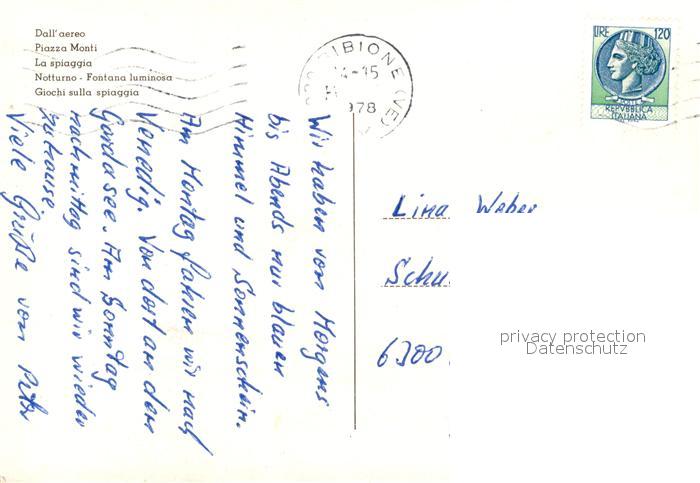 Dall'aereo
Piazza Monti
La spiaggia
Notturno - Fontana luminosa
Giochi sulla spiaggia
BIBIONE (VE)
4-15
1978
LIRE 120
REPVBBLICA
ITALIANA
Wir haben von Morgens
bis Abends nur blauen
Himmel und Sonnenschein.
Am Montag fahren wir nach
Venedig. Von dort an den
Gardasee. Am Sonntag
nachmittag sind wir wieder
zuhause.
Viele Grüße von Peter
Lina Weber
Schu
6300
privacy protection
Datenschutz